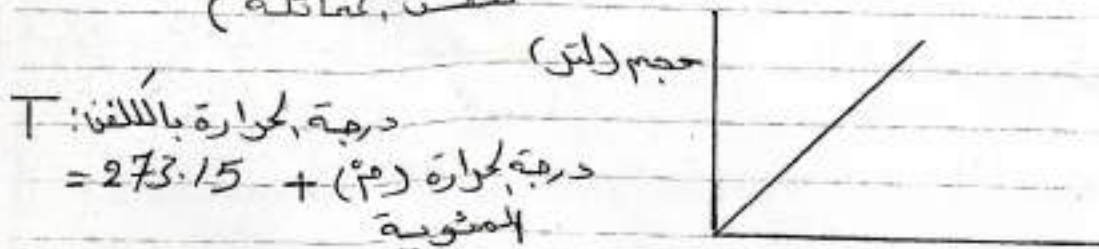 حجم (لتر)
T: درجة الحرارة بالكلفن
= 273.15 + درجة الحرارة (م°)
المئوية